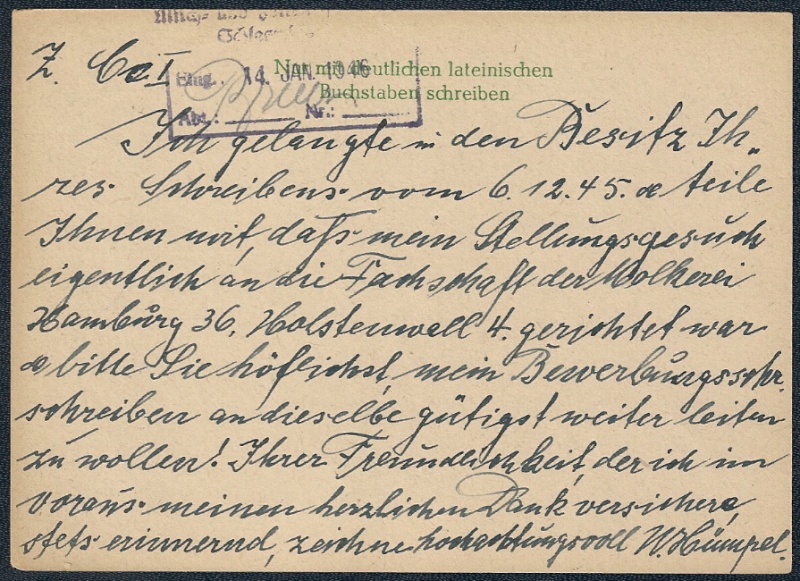 Z.
Eing. 14. JAN. 1946
Abt.: Nr.:
Nur mit deutlichen lateinischen
Buchstaben schreiben
Ich gelangte in den Besitz Ih„
res Schreibens vom 6.12.45. & teile
Ihnen mit, dass mein Stellungsgesuch
eigentlich an die Fachschaft der Molkerei
Hamburg 36, Holstenwall 4. gerichtet war
& bitte Sie höflichst, mein Bewerbungsschr.
schreiben an dieselbe gütigst weiter leiten
zu wollen! Ihrer Freundlichkeit, der ich im
voraus meinen herzlichen Dank versichere,
stets erinnernd, zeichne hochachtungsvoll W. Hümpel.